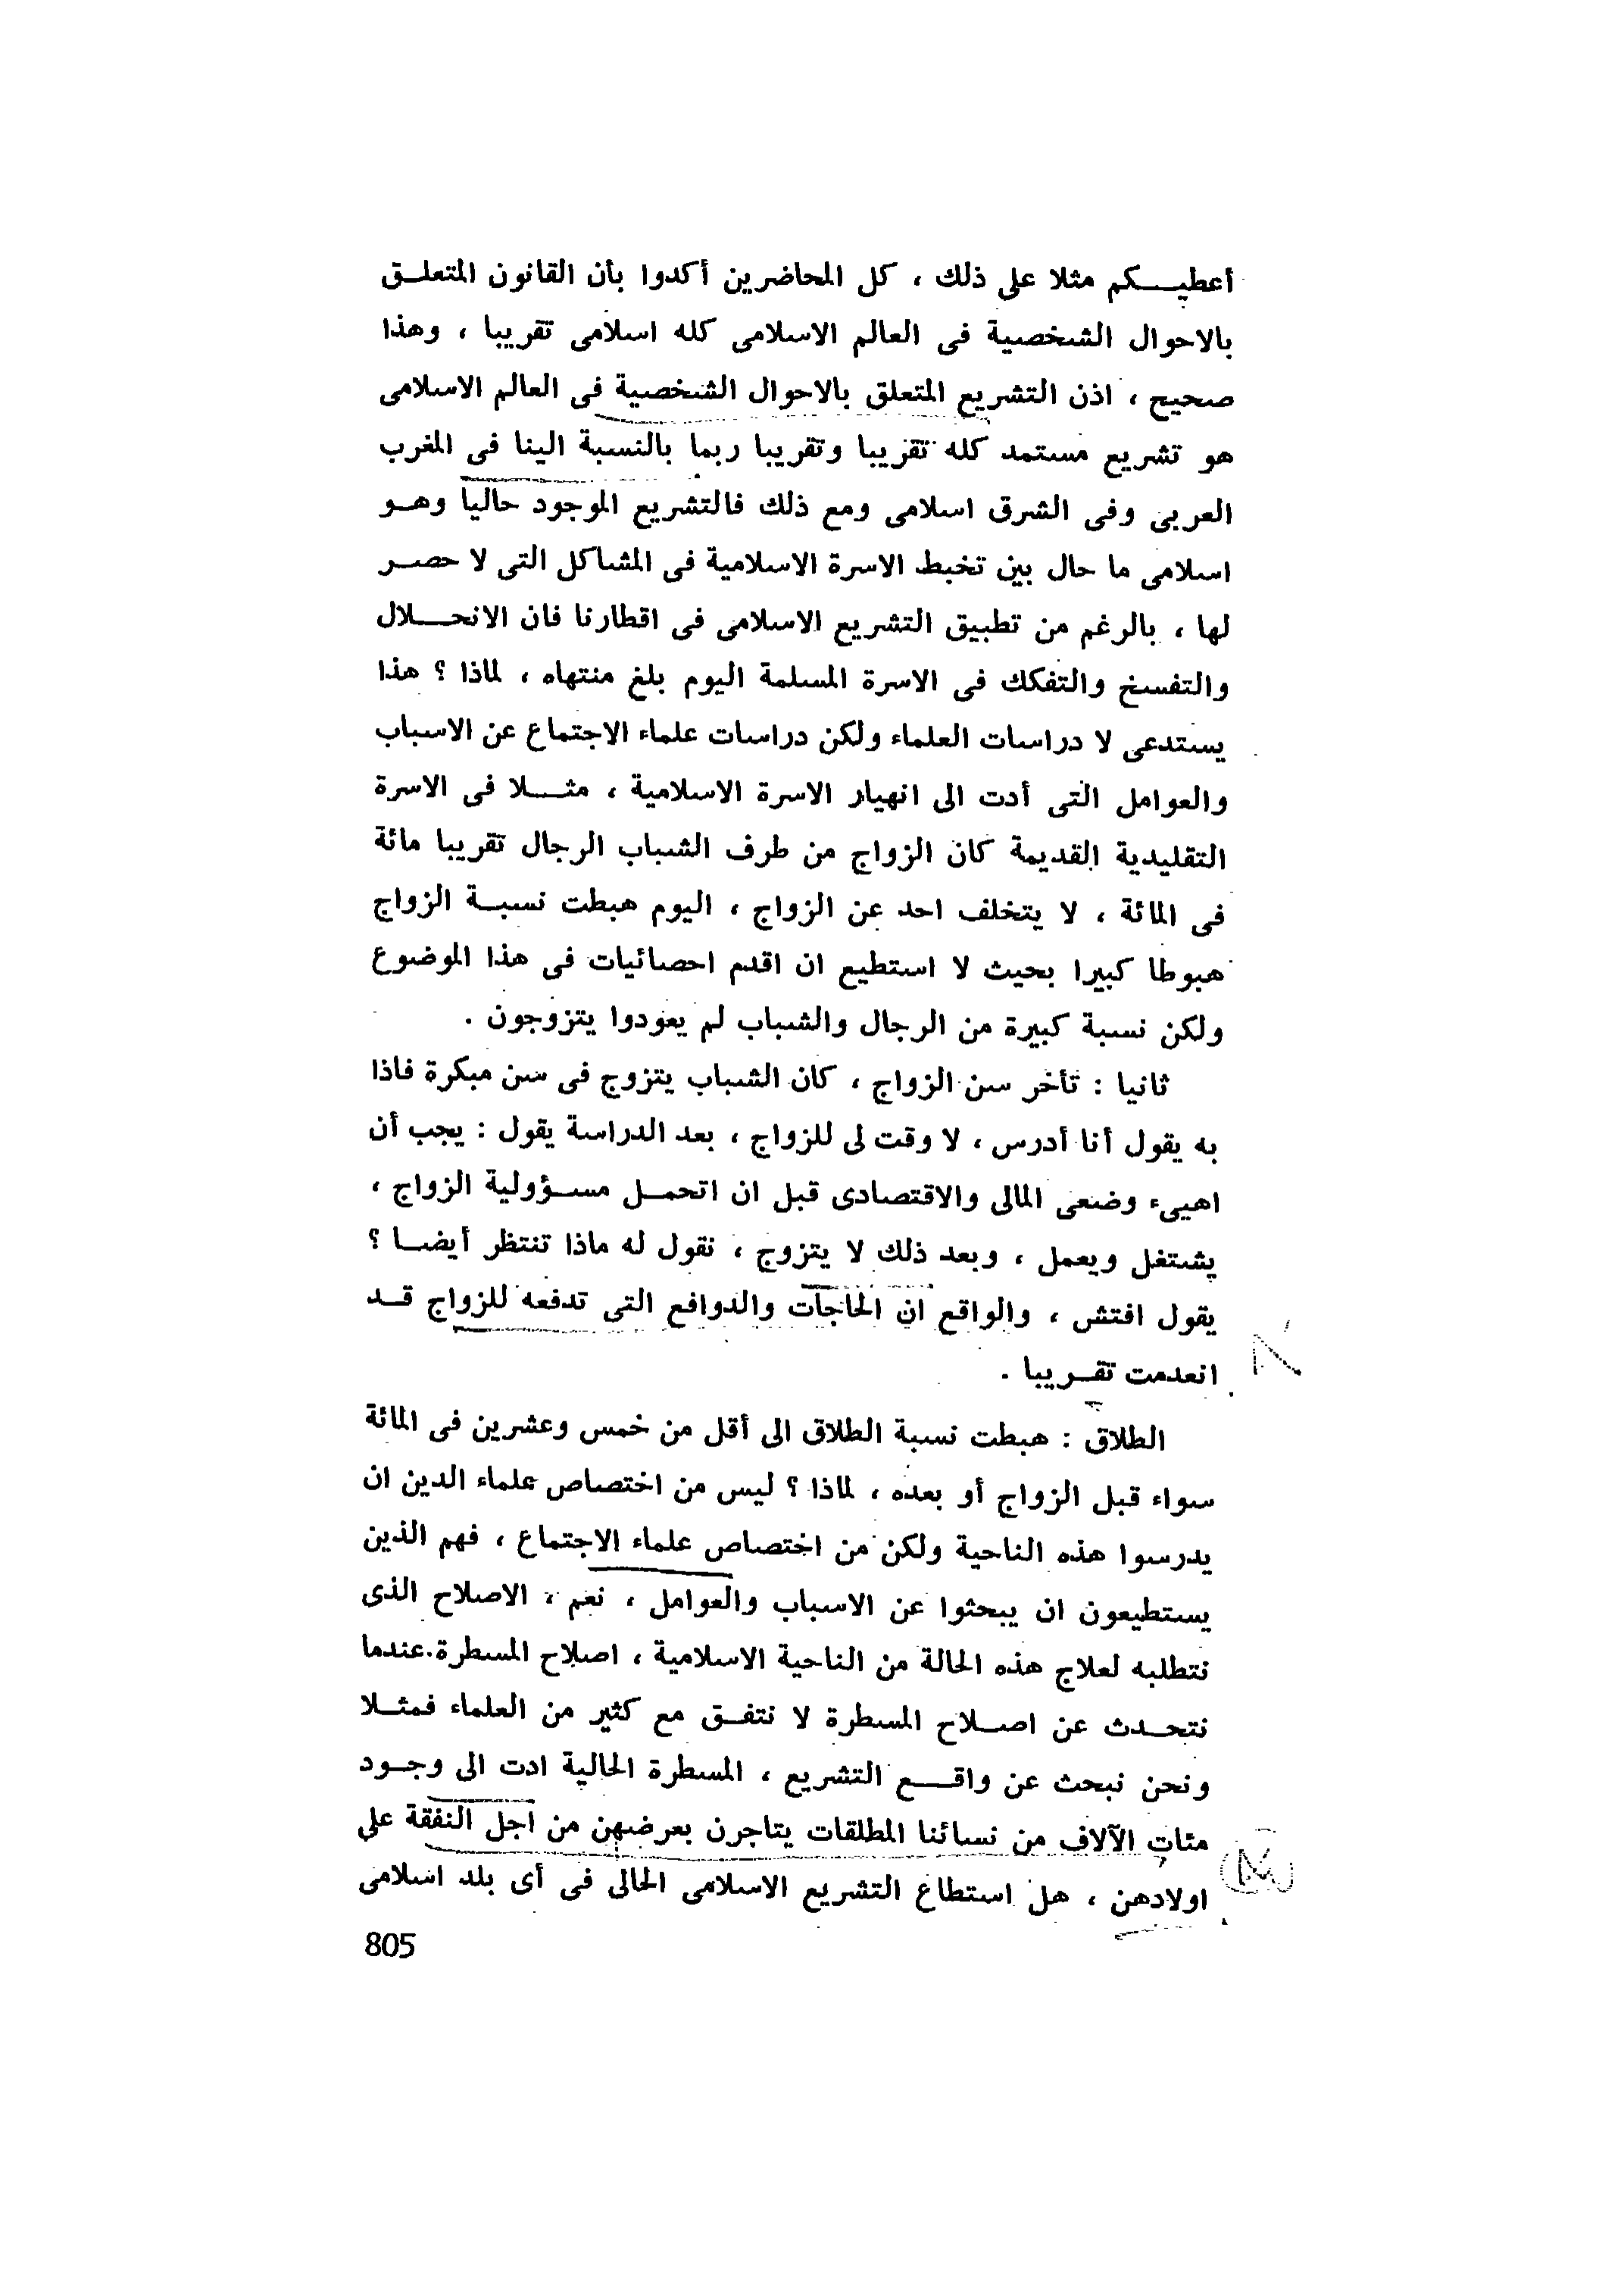 أعطيكم مثلا على ذلك ، كل المحاضرين أكدوا بأن القانون المتعلق
بالاحوال الشخصية فى العالم الاسلامى كله اسلامى تقريبا ، وهذا
صحيح ، اذن التشريع المتعلق بالاحوال الشخصية فى العالم الاسلامى
هو تشريع مستمد كله تقريبا وتقريبا ربما بالنسبة الينا فى المغرب
العربى وفى الشرق اسلامى ومع ذلك فالتشريع الموجود حاليا وهو
اسلامى ما حال بين تخبط الاسرة الاسلامية فى المشاكل التى لا حصر
لها ، بالرغم من تطبيق التشريع الاسلامى فى اقطارنا فان الانحلال
والتفسخ والتفكك فى الاسرة المسلمة اليوم بلغ منتهاه ، لماذا ؟ هذا
يستدعى لا دراسات العلماء ولكن دراسات علماء الاجتماع عن الاسباب
والعوامل التى أدت الى انهيار الاسرة الاسلامية ، مثلا فى الاسرة
التقليدية القديمة كان الزواج من طرف الشباب الرجال تقريبا مائة
فى المائة ، لا يتخلف احد عن الزواج ، اليوم هبطت نسبة الزواج
هبوطا كبيرا بحيث لا استطيع ان اقدم احصائيات فى هذا الموضوع
ولكن نسبة كبيرة من الرجال والشباب لم يعودوا يتزوجون .
ثانيا : تأخر سن الزواج ، كان الشباب يتزوج فى سن مبكرة فاذا
به يقول أنا أدرس ، لا وقت لى للزواج ، بعد الدراسة يقول : يجب أن
اهيىء وضعى المالى والاقتصادى قبل ان اتحمل مسؤولية الزواج ،
يشتغل ويعمل ، وبعد ذلك لا يتزوج ، نقول له ماذا تنتظر أيضا ؟
يقول افتش ، والواقع ان الحاجات والدوافع التى تدفعه للزواج قد
انعدمت تقريبا .
الطلاق : هبطت نسبة الطلاق الى أقل من خمس وعشرين فى المائة
سواء قبل الزواج أو بعده ، لماذا ؟ ليس من اختصاص علماء الدين ان
يدرسوا هذه الناحية ولكن من اختصاص علماء الاجتماع ، فهم الذين
يستطيعون ان يبحثوا عن الاسباب والعوامل ، نعم ، الاصلاح الذى
نتطلبه لعلاج هذه الحالة من الناحية الاسلامية ، اصلاح المسطرة.عندما
نتحدث عن اصلاح المسطرة لا نتفق مع كثير من العلماء فمثلا
ونحن نبحث عن واقع التشريع ، المسطرة الحالية ادت الى وجود
مئات الآلاف من نسائنا المطلقات يتاجرن بعرضهن من اجل النفقة على
اولادهن ، هل استطاع التشريع الاسلامى الحالى فى أى بلد اسلامى
805